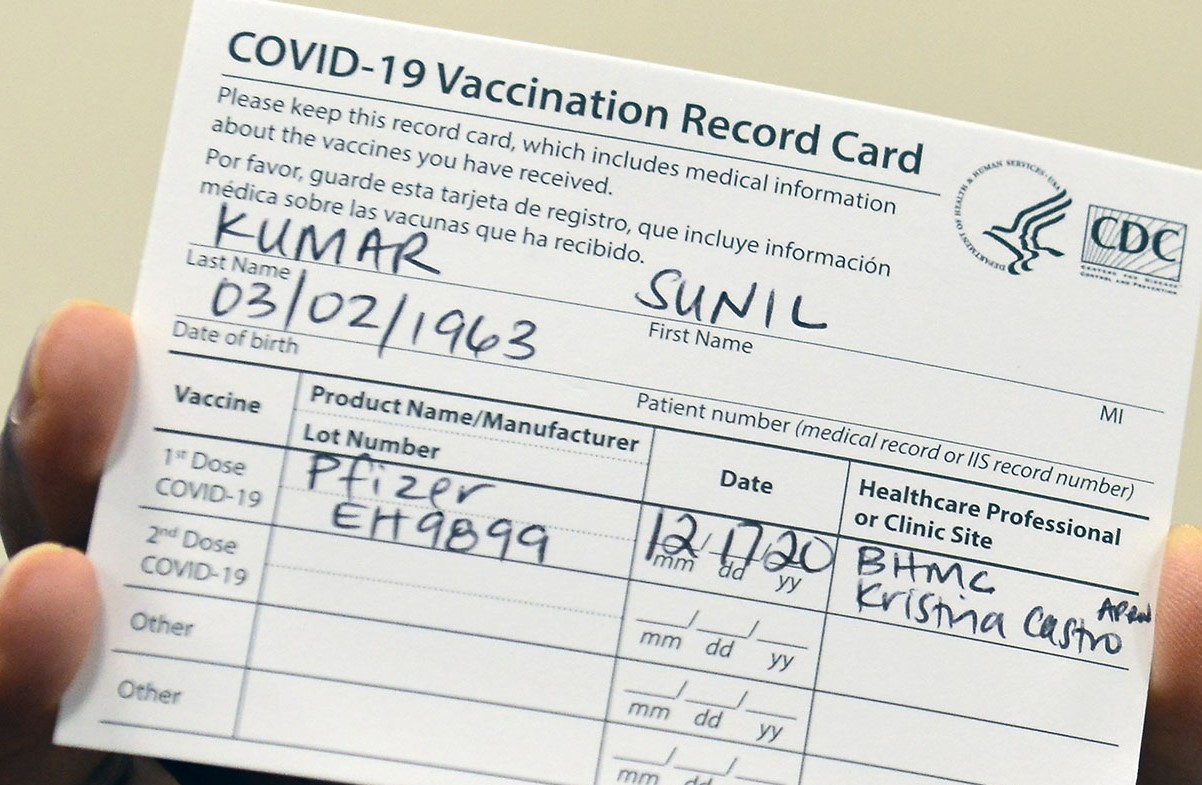 COVID-19 Vaccination Record Card
Please keep this record card, which includes medical information
about the vaccines you have received.
Por favor, guarde esta tarjeta de registro, que incluye información
médica sobre las vacunas que ha recibido.
DEPARTMENT OF HEALTH & HUMAN SERVICES • USA
CDC
CENTERS FOR DISEASE
CONTROL AND PREVENTION
KUMAR SUNIL
Last Name First Name MI
03/02/1963
Date of birth Patient number (medical record or IIS record number)
Vaccine Product Name/Manufacturer Date Healthcare Professional
Lot Number or Clinic Site
1st Dose Pfizer 12/17/20 BHMC
COVID-19 EH9899 mm dd yy Kristina Castro APRN
2nd Dose
COVID-19 mm dd yy
Other
mm dd yy
Other
mm dd